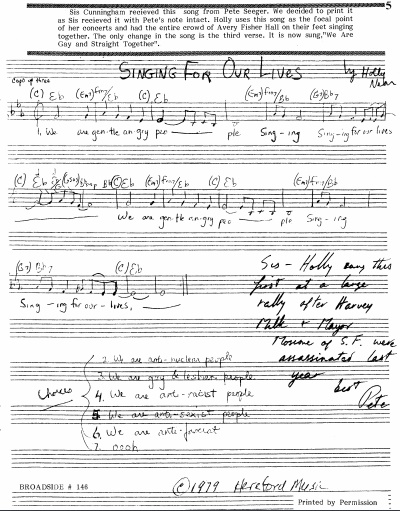 5
Sis Cunningham recieved this song from Pete Seeger. We decided to print it
as Sis recieved it with Pete's note intact. Holly uses this song as the focal point
of her concerts and had the entire crowd of Avery Fisher Hall on their feet singing
together. The only change in the song is the third verse. It is now sung,"We Are
Gay and Straight Together".
SINGING FOR OUR LIVES
by Holly
Near
Capo of three
(C) Eb (Em7)Fm7/Bb (C) Eb (Em7)Fm7/Bb (G7)Bb7
1. We are gen-tle an-gry peo ple Sing-ing Sing-ing for our lives
(C) Eb (C)Eb (Em7)Fm7/Eb (C) Eb (Em7)Fm7/Bb
We are gen-tle an-gry peo ple Sing-ing
(G7) Bb7 (C)Eb
Sing-ing for our-lives.
Sis - Holly sang this
first at a large
rally after Harvey
Milk + Mayor
Moscone of S.F. were
assassinated last
year
best
Pete
Choices
2. We are anti-nuclear people
3. We are gay & lesbian people
4. We are anti-racist people
5. We are anti-sexist people
6. We are anti-facist
7. oooh
BROADSIDE # 146
©1979 Hereford Music
Printed by Permission